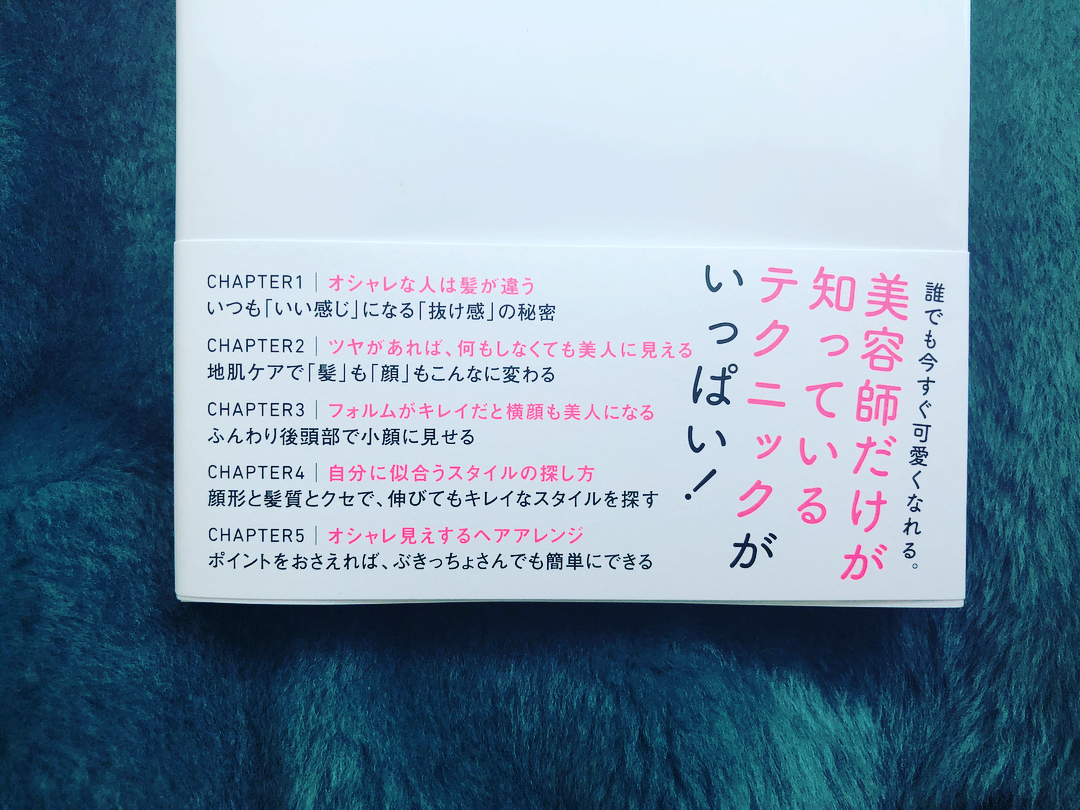 誰でも今すぐ可愛くなれる。
美容師だけが
知っている
テクニックが
いっぱい!
CHAPTER1｜オシャレな人は髪が違う
いつも「いい感じ」になる「抜け感」の秘密
CHAPTER2｜ツヤがあれば、何もしなくても美人に見える
地肌ケアで「髪」も「顔」もこんなに変わる
CHAPTER3｜フォルムがキレイだと横顔も美人になる
ふんわり後頭部で小顔に見せる
CHAPTER4｜自分に似合うスタイルの探し方
顔形と髪質とクセで、伸びてもキレイなスタイルを探す
CHAPTER5｜オシャレ見えするヘアアレンジ
ポイントをおさえれば、ぶきっちょさんでも簡単にできる